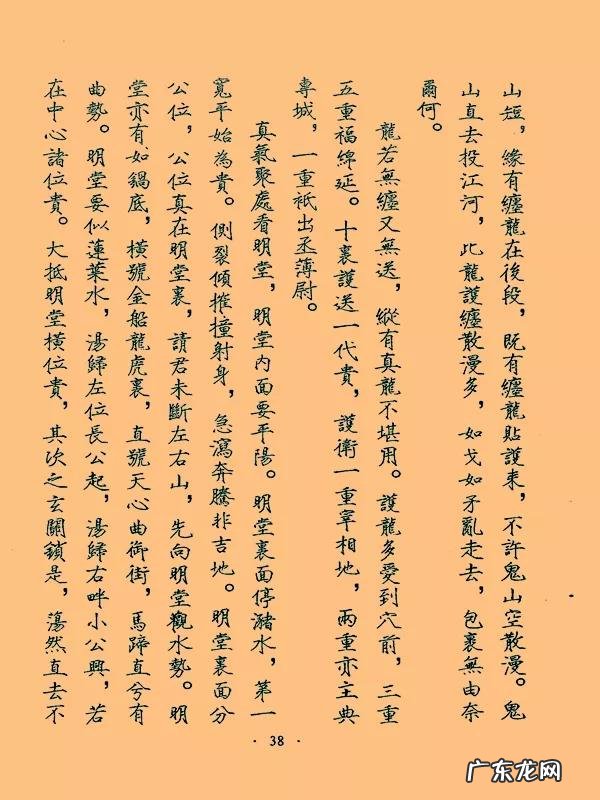 山短，緣有纏龍在後段，既有纏龍貼護來，不許鬼山空散漫。鬼
山直去投江河，此龍護纏散漫多，如戈如矛亂走去，包裹無由奈
爾何。
龍若無纏又無送，縱有真龍不堪用。護龍多愛到穴前，三重
五重福綿延。十裹護送一代貴，護衛一重宰相地，兩重亦主典
專城，一重祗出丞薄尉。
真氣聚處看明堂，明堂內面要平陽。明堂裏面停瀦水，第一
寬平始為貴。側裂傾摧撞射身，急瀉奔騰非吉地。明堂裏面分
公位，公位真在明堂裏，請君未斷左右山，先向明堂觀水勢。明
堂亦有如鍋底，橫號金船龍虎裏，直號天心曲御街，馬蹄直兮有
曲勢。明堂要似蓮葉水，湯歸左位長公起，湯歸右畔小公興，若
在中心諸位貴。大抵明堂橫位貴，其次之玄關鎖是，蕩然直去不
· 38 ·
广东龙网